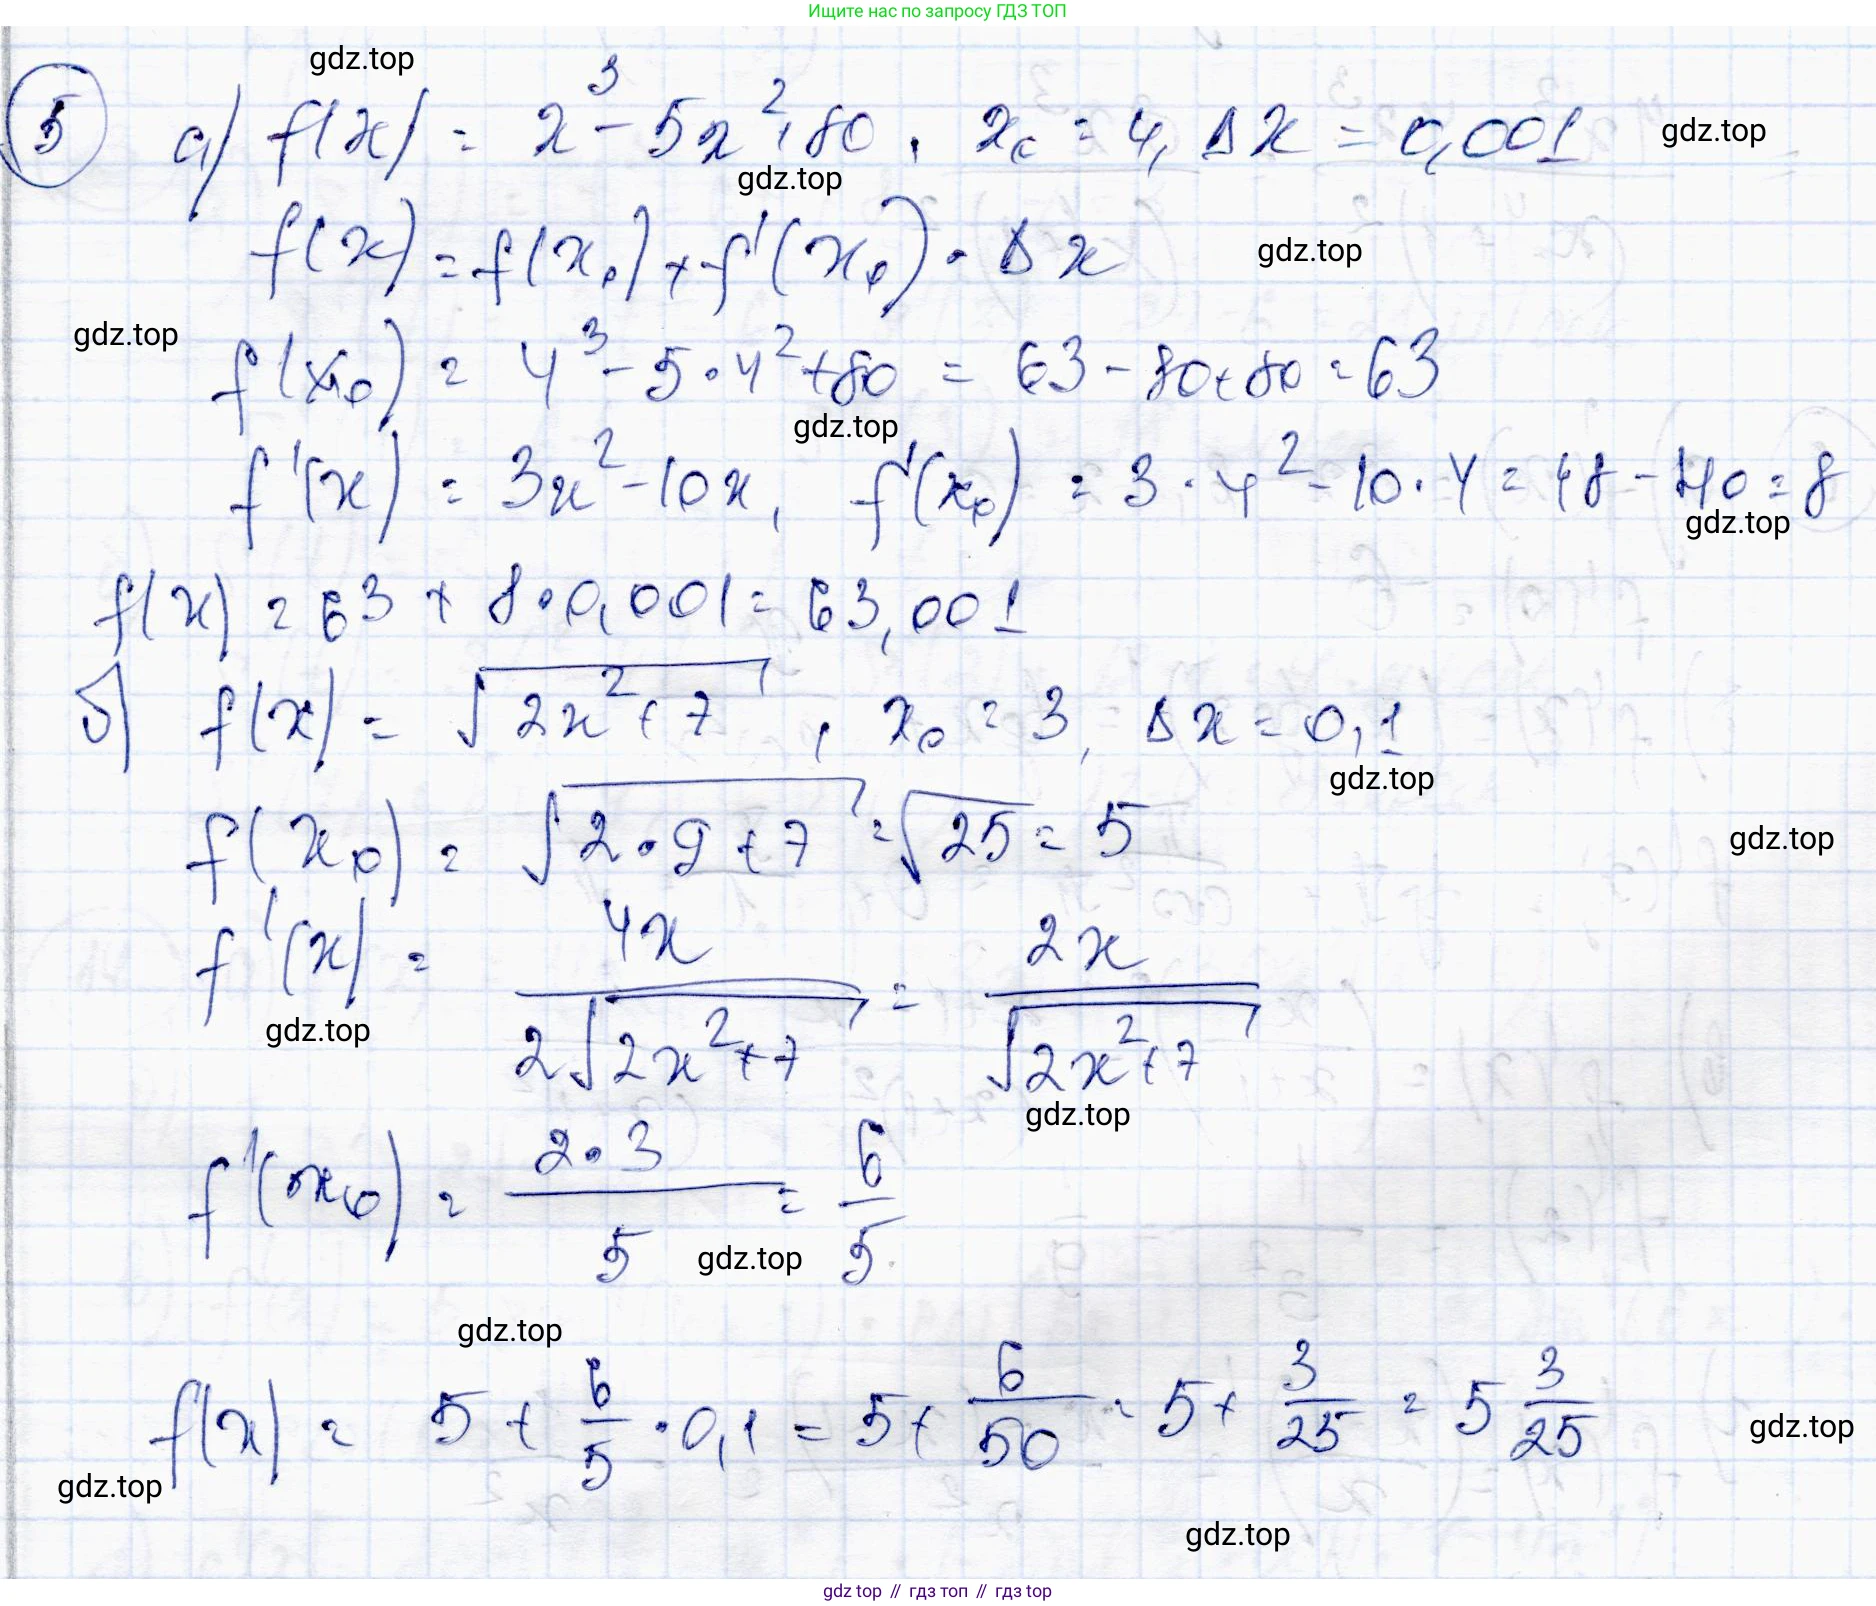 Ищите нас по запросу ГДЗ ТОП
gdz.top
5 а) f(x) = x³ - 5x² + 80, x₀ = 4, Δx = 0,001
gdz.top
gdz.top
f(x) = f(x₀) + f'(x₀) · Δx
gdz.top
gdz.top
f(x₀) = 4³ - 5·4² + 80 = 63 - 80 + 80 = 63
gdz.top
f'(x) = 3x² - 10x, f'(x₀) = 3·4² - 10·4 = 48 - 40 = 8
gdz.top
f(x) = 63 + 8·0,001 = 63,001
б) f(x) = √(2x² + 7), x₀ = 3, Δx = 0,1
gdz.top
f(x₀) = √(2·9 + 7) = √25 = 5
gdz.top
f'(x) = 4x / 2√(2x² + 7) = 2x / √(2x² + 7)
gdz.top
gdz.top
f'(x₀) = 2·3 / 5 = 6/5
gdz.top
gdz.top
f(x) = 5 + 6/5 · 0,1 = 5 + 6/50 = 5 + 3/25 = 5 3/25
gdz.top
gdz.top
gdz.top
gdz.top // гдз топ // гдз top